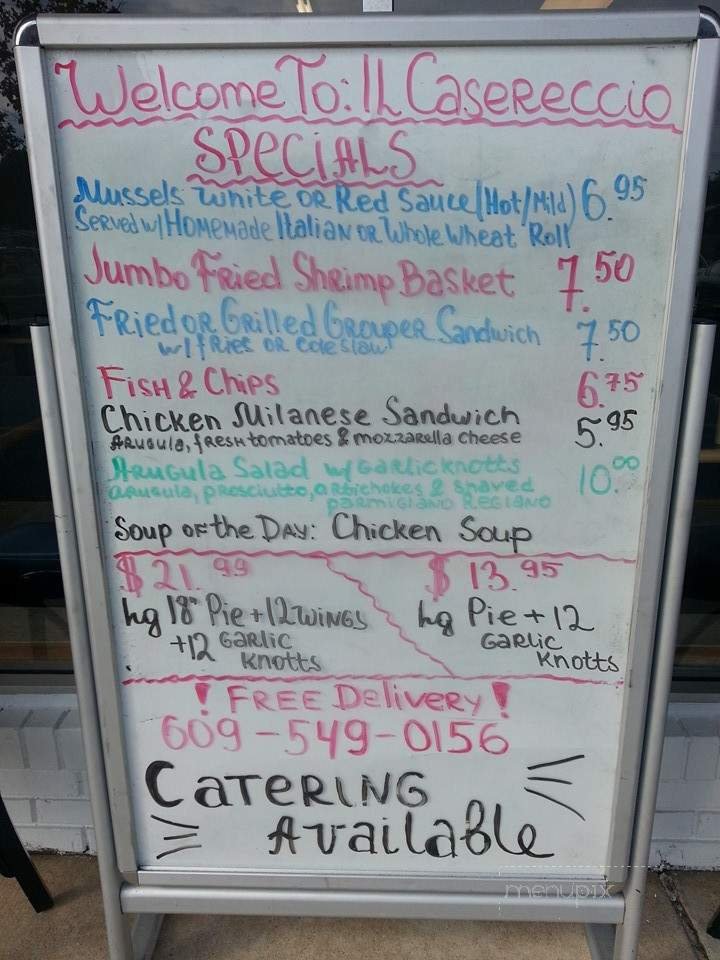 Welcome To: IL Casereccio
Specials
Mussels White or Red Sauce (Hot/Mild) 6.95
Served w/ Homemade Italian or Whole Wheat Roll
Jumbo Fried Shrimp Basket 7.50
Fried or Grilled Grouper Sandwich 7.50
w/ fries or coleslaw
Fish & Chips 6.75
Chicken Milanese Sandwich 5.95
Arugula, fresh tomatoes & mozzarella cheese
Arugula Salad w/ garlic knotts 10.00
arugula, prosciutto, artichokes & shaved
parmigiano regiano
Soup of the Day: Chicken Soup
$21.99 $13.95
hg 18" Pie + 12 wings hg Pie + 12
+12 garlic garlic
knotts knotts
! FREE Delivery !
609-549-0156
Catering
Available
menupix